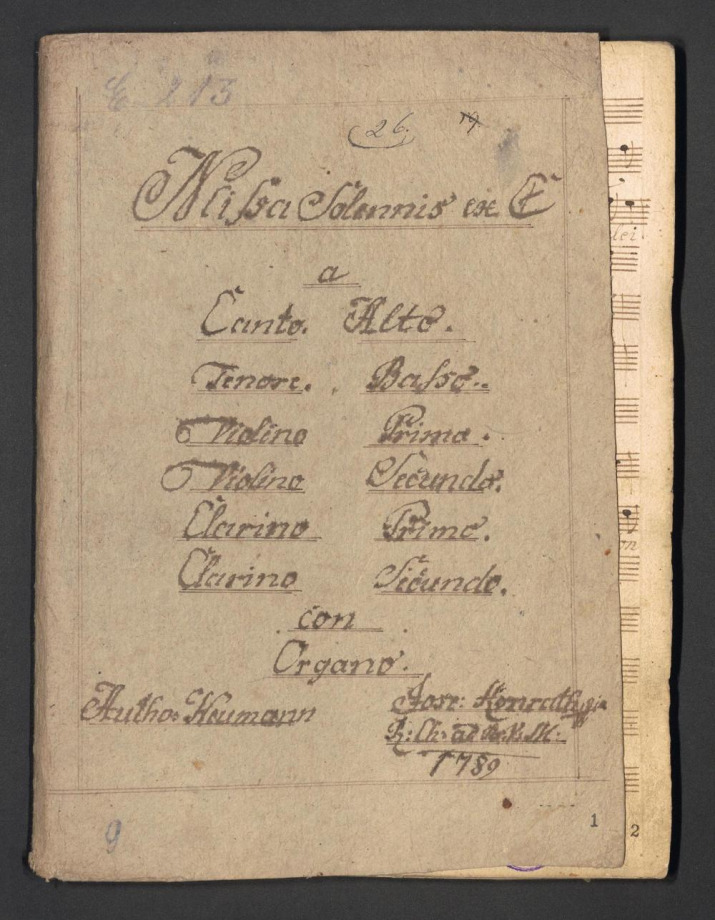 E 213
26.
Missa Solennis ex C
a
Canto. Alto.
Tenore. Basso.
Violino Primo.
Violino Secundo.
Clarino Primo.
Clarino Secundo.
con
Organo.
Autho: Neumann
Jos: Konrath
R: Ch: ad
1789
9
1
2